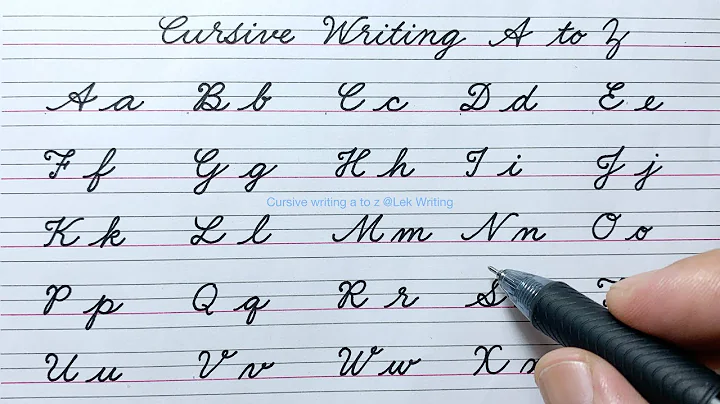 Cursive Writing A to Z
A a B b C c D d E e
F f G g H h I i J j
Cursive writing a to z @Lek Writing
K k L l M m N n O o
P p Q q R r S
U u V v W w X